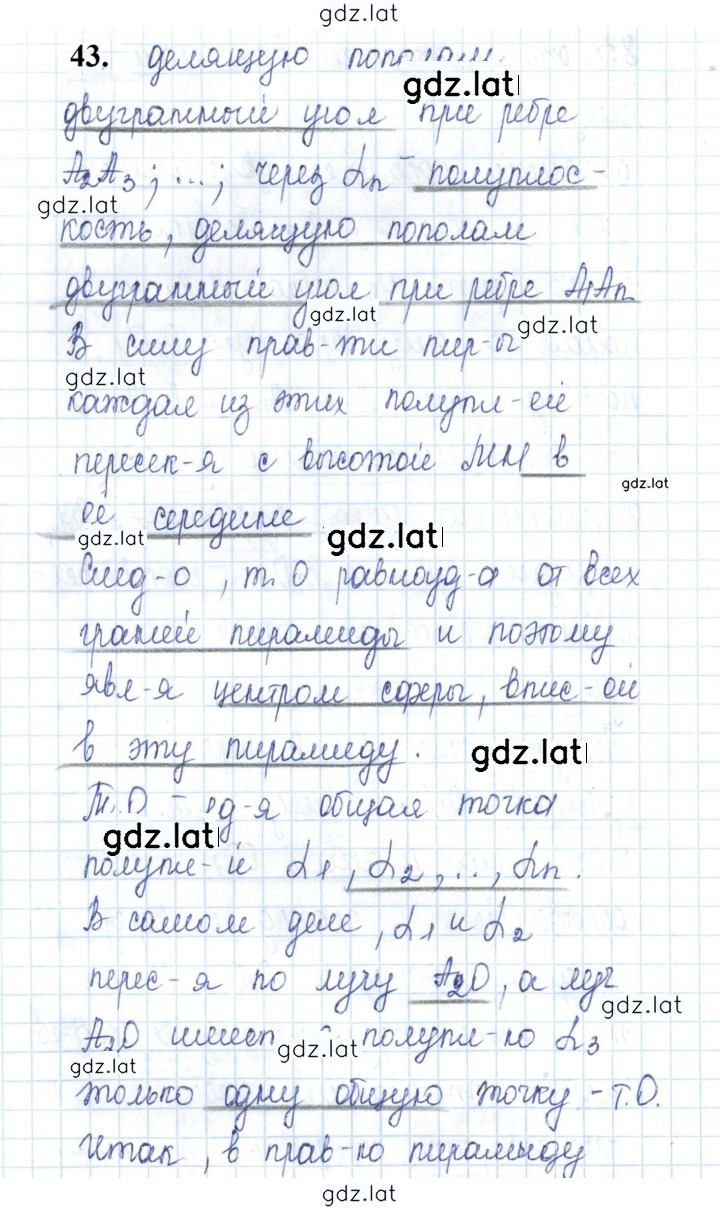 gdz.lat
43. делящую пополам
gdz.lat
двугранный угол при ребре
A₂A₃; ...; через αₙ - полуплос-
gdz.lat
кость, делящую пополам
двугранный угол при ребре A₁Aₙ
gdz.lat
gdz.lat
В силу прав-ти пир-ы
gdz.lat
каждая из этих полупл-ей
пересек-я с высотой MH в
gdz.lat
её середине
gdz.lat
gdz.lat
След-о, т. O равноуд-а от всех
граней пирамиды и поэтому
явл-я центром сферы, впис-ой
в эту пирамиду.
gdz.lat
Т.O - ед-я общая точка
gdz.lat
полупл-й α₁, α₂, ..., αₙ.
В самом деле, α₁ и α₂
перес-я по лучу A₂O, а луч
gdz.lat
A₂O имеет с полупл-ю α₃
gdz.lat
gdz.lat
только одну общую точку - т.O.
Итак, в прав-ю пирамиду
gdz.lat